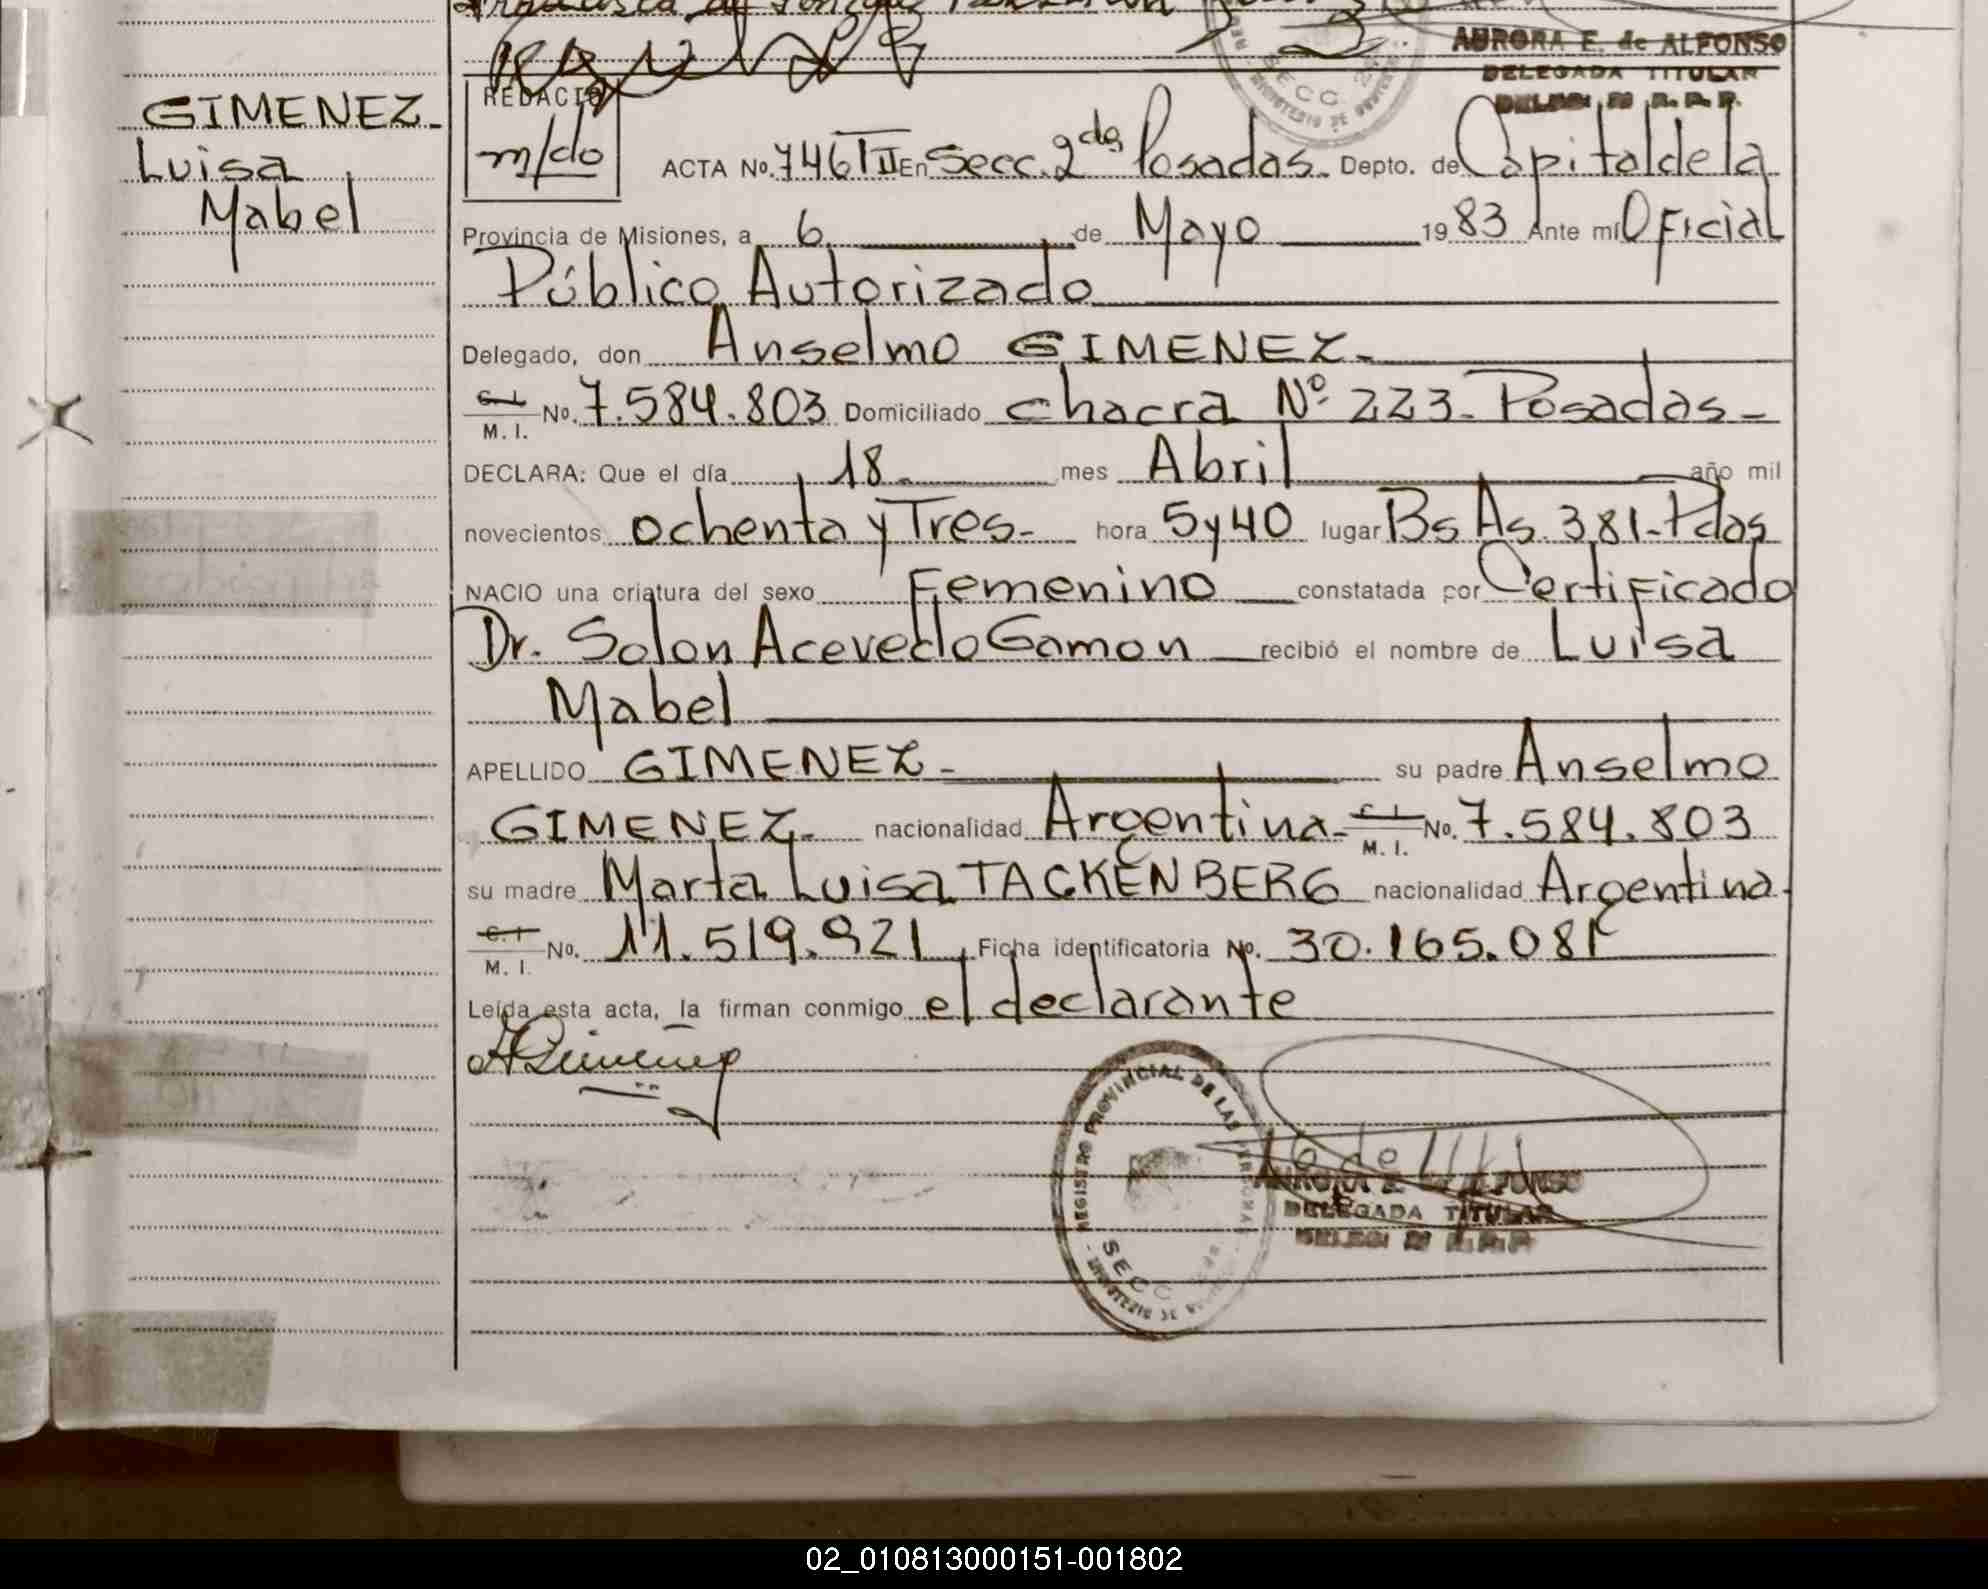 AURORA E. de ALFONSO
DELEGADA TITULAR
GIMENEZ
Luisa
Mabel
REDACIO
m/do
ACTA No. 746 TII En Secc. 2da Posadas. Depto. de Capital de la
Provincia de Misiones, a 6 de Mayo 1983 Ante mí Oficial
Público Autorizado
Delegado, don Anselmo GIMENEZ.
C. I. M. I. No. 7.584.803 Domiciliado chacra Nº 223 - Posadas -
DECLARA: Que el día 18 mes Abril año mil
novecientos ochenta y Tres. hora 5 y 40 lugar Bs As. 381 - Pdas
NACIO una criatura del sexo Femenino constatada por Certificado
Dr. Solon Acevedo Gamon recibió el nombre de Luisa
Mabel
APELLIDO GIMENEZ - su padre Anselmo
GIMENEZ - nacionalidad Argentina - C. I. M. I. No. 7.584.803
su madre Marta Luisa TACKENBERG nacionalidad Argentina.
C. I. M. I. No. 11.519.921 Ficha identificatoria No. 30.165.081
Leída esta acta, la firman conmigo el declarante
AGimenez
REGISTRO PROVINCIAL DE LAS PERSONAS
SECC
DELEGADA TITULAR
02_010813000151-001802